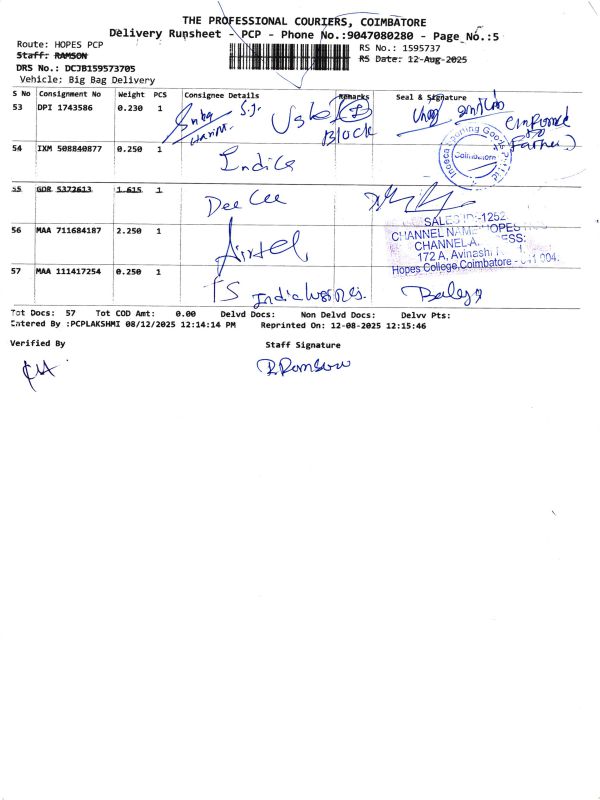 THE PROFESSIONAL COURIERS, COIMBATORE
Delivery Runsheet - PCP - Phone No.:9047080280 - Page No.:5
Route: HOPES PCP
RS No.: 1595737
Staff: RAMSON
RS Date: 12-Aug-2025
DRS No.: DCJB159573705
Vehicle: Big Bag Delivery
S No Consignment No Weight PCS Consignee Details Remarks Seal & Signature
53 DPI 1743586 0.230 1
Block
54 IXM 508840877 0.250 1 Indica
Coimbatore
55 GOR 5372613 1.615 1 Dee Cee
56 MAA 711684187 2.250 1 Airtel
SALES ID:-1252
CHANNEL NAME HOPES
CHANNEL A. ESS:
172 A, Avinashi
Hopes College, Coimbatore - 641 004.
57 MAA 111417254 0.250 1 TS India
Tot Docs: 57 Tot COD Amt: 0.00 Delvd Docs: Non Delvd Docs: Delvv Pts:
Entered By :PCPLAKSHMI 08/12/2025 12:14:14 PM Reprinted On: 12-08-2025 12:15:46
Verified By Staff Signature
R Ramson